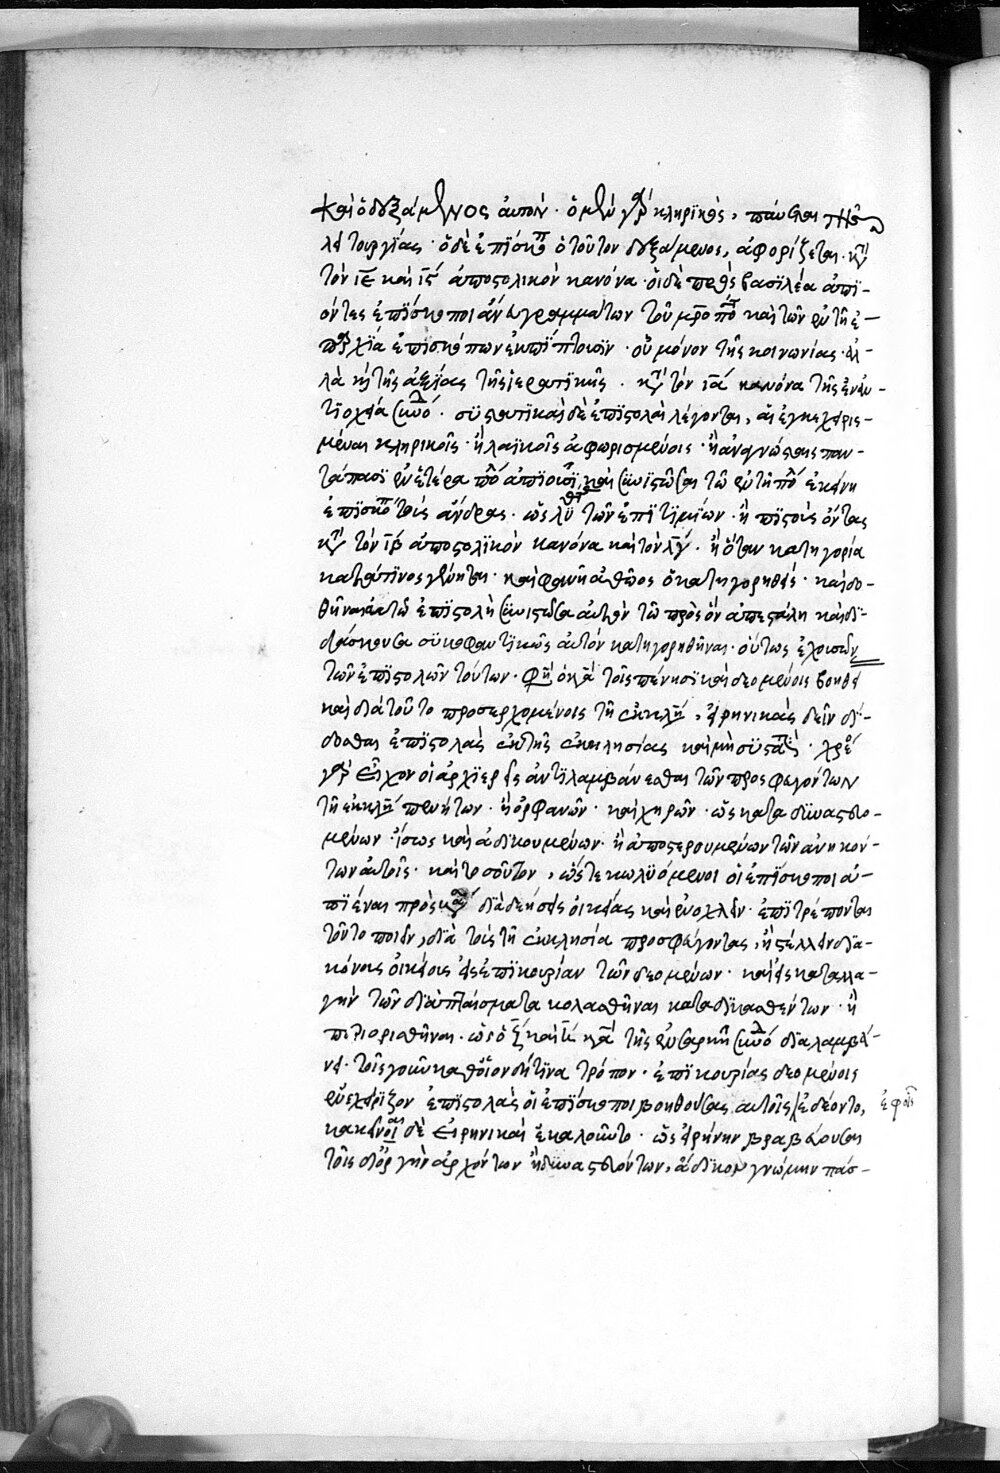 καὶ ὁ δεξάμενος αὐτόν· ὁ μὲν γὰρ κληρικὸς, παύεται τῆς
λειτουργίας· ὁ δὲ ἐπίσκοπ ὁ τοῦτον δεξάμενος, ἀφορίζεται· κατὰ
τὸν ιε καὶ ις ἀποστολικὸν κανόνα· οἱ δὲ πρὸς βασιλέα ἀπι-
όντες ἐπίσκοποι ἄνευ γραμμάτων τοῦ μροπο καὶ τῶν ἐν τῇ ἐ-
παρχία ἐπισκόπων ἐκπίπτουσιν· οὐ μόνον τῆς κοινωνίας· ἀλ-
λὰ κὴ τῆς ἀξίας τῆς ἱερατικῆς· κατὰ τὸν ια κανόνα τῆς ἐν ἀν-
τιοχεία συνό· συστατικαὶ δὲ ἐπιστολαὶ λέγονται, αἱ ἐγκεχειρισ-
μέναι κληρικοῖς· ἢ λαϊκοῖς ἀφωρισμένοις· ἢ ἀναγνώσταις παν-
τάπασι ἐν ἑτέρα πό ἀπιοῦσι, καὶ συνιστῶσαι τῶ ἐν τῇ πό ἐκείνη
ἐπισκό τοὺς ἄνδρας· ὡς λυθεν τῶν ἐπιτιμίων· ἢ πιστοὺς ὄντας
κατὰ τὸν ιβ ἀποστολικὸν κανόνα καὶ τὸν λγ· ἢ ὅταν κατηγορία
κατά τινος γένηται· καὶ φανῆ ἀθῶος ὁ κατηγορηθείς· καὶ δο-
θῆναι αὐτῶ ἐπιστολὴ συνιστῶσα αὐτὸν τῶ πρὸς ὃν ἀπεστάλη καὶ δι-
δάσκουσα συκοφαντικῶς αὐτὸν κατηγορηθῆναι· οὕτως ἐχουσῶν
τῶν ἐπιστολῶν τούτων· φη ὁ κα τοῖς πένησι καὶ δεομένοις βοηθεί
καὶ διὰ τοῦτο προσερχομένοις τῆ ἐκκλη, εἰρηνικὰς δεῖν δί-
δοσθαι ἐπιστολὰς ἐκ τῆς ἐκκλησίας καὶ μὴ συστα· χρέ
γὰρ εἶχον οἱ ἀρχιερεῖς ἀντιλαμβάνεσθαι τῶν προσφευγόντων
τῆ ἐκκλη πενήτων· ἢ ὀρφανῶν· καὶ χηρῶν· ὡς καταδυναστευο-
μένων· ἴσως καὶ ἀδικουμένων· ἢ ἀποστερουμένων τῶν ἀνηκόν-
των αὐτοῖς· καὶ τοσοῦτον, ὥστε κωλυόμενοι οἱ ἐπίσκοποι ἀ-
πιέναι πρὸς διὰ δεήσεις οἰκείας καὶ ἐνοχλεῖν· ἐπιτρέπονται
τοῦτο ποιεῖν, διὰ τοὺς τῆ ἐκκλησία προσφεύγοντας, ἢ στέλλειν δια-
κόνους οἰκείους εἰς ἐπικουρίαν τῶν δεομένων· καὶ εἰς καταλλα-
γὴν τῶν διὰ πταίσματα κολασθῆναι καταδικασθέντων· ἢ
περιορισθῆναι· ὡς ὁ ζ καὶ κα τῆς ἐν σαρδικῆ συνό διαλαμβά-
νει· τοῖς γοῦν καθ᾽ οἷον δή τινα τρόπον· ἐπικουρίας δεομένοις
ἐνεχείριζον ἐπιστολὰς οἱ ἐπίσκοποι βοηθούσας αὐτοῖς ἐδέοντο, ἐφ οἷς
κακεῖναι δὲ εἰρηνικαὶ ἐκαλοῦντο· ὡς εἰρήνην βραβεύουσαι
τοῖς δι᾽ ὀργὴν ἀρχόντων ἢ δυναστευόντων, ἄδικον γνώμην πάσ-